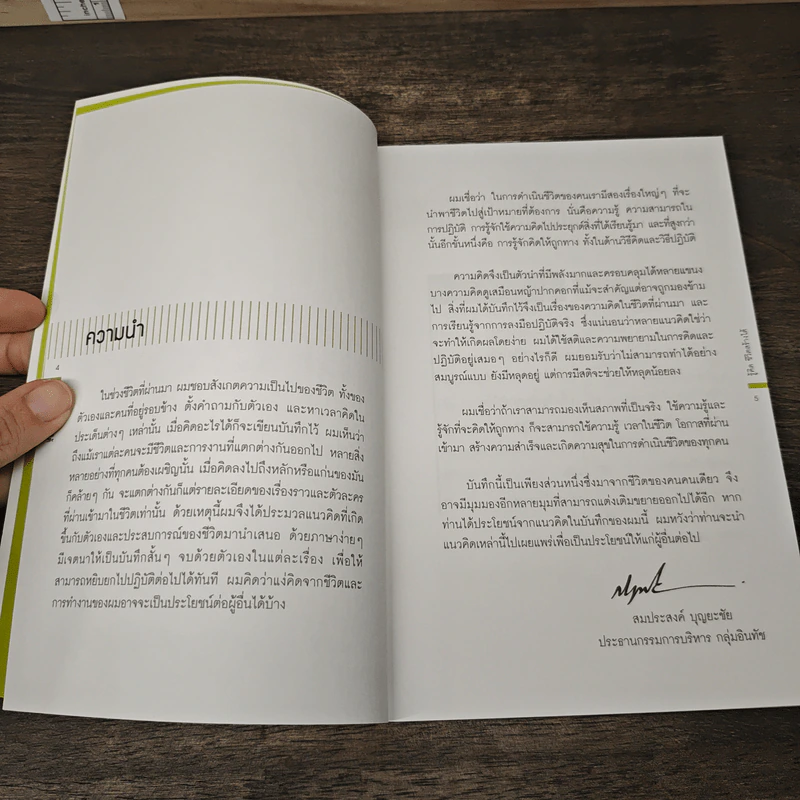 ความนำ
4
ในช่วงชีวิตที่ผ่านมา ผมชอบสังเกตความเป็นไปของชีวิต ทั้งของ
ตัวเองและคนที่อยู่รอบข้าง ตั้งคำถามกับตัวเอง และหาเวลาคิดใน
ประเด็นต่างๆ เหล่านั้น เมื่อคิดอะไรได้ก็จะเขียนบันทึกไว้ ผมเห็นว่า
ถึงแม้เราแต่ละคนจะมีชีวิตและการงานที่แตกต่างกันออกไป หลายสิ่ง
หลายอย่างที่ทุกคนต้องเผชิญนั้น เมื่อคิดลงไปถึงหลักหรือแก่นของมัน
ก็คล้ายๆ กัน จะแตกต่างกันก็แต่รายละเอียดของเรื่องราวและตัวละคร
ที่ผ่านเข้ามาในชีวิตเท่านั้น ด้วยเหตุนี้ผมจึงได้ประมวลแนวคิดที่เกิด
ขึ้นกับตัวเองและประสบการณ์ของชีวิตมานำเสนอ ด้วยภาษาง่ายๆ
มีเจตนาให้เป็นบันทึกสั้นๆ จบด้วยตัวเองในแต่ละเรื่อง เพื่อให้
สามารถหยิบยกไปปฏิบัติต่อไปได้ทันที ผมคิดว่าแง่คิดจากชีวิตและ
การทำงานของผมอาจจะเป็นประโยชน์ต่อผู้อื่นได้บ้าง
ผมเชื่อว่า ในการดำเนินชีวิตของคนเรามีสองเรื่องใหญ่ๆ ที่จะ
นำพาชีวิตไปสู่เป้าหมายที่ต้องการ นั่นคือความรู้ ความสามารถใน
การปฏิบัติ การรู้จักใช้ความคิดไปประยุกต์สิ่งที่ได้เรียนรู้มา และที่สูงกว่า
นั้นอีกขั้นหนึ่งคือ การรู้จักคิดให้ถูกทาง ทั้งในด้านวิธีคิดและวิธีปฏิบัติ
ความคิดจึงเป็นตัวนำที่มีพลังมากและครอบคลุมได้หลายแขนง
บางความคิดดูเสมือนหญ้าปากคอกที่แม้จะสำคัญแต่อาจถูกมองข้าม
ไป สิ่งที่ผมได้บันทึกไว้จึงเป็นเรื่องของความคิดในชีวิตที่ผ่านมา และ
การเรียนรู้จากการลงมือปฏิบัติจริง ซึ่งแน่นอนว่าหลายแนวคิดใช่ว่า
จะทำให้เกิดผลโดยง่าย ผมได้ใช้สติและความพยายามในการคิดและ
ปฏิบัติอยู่เสมอๆ อย่างไรก็ดี ผมยอมรับว่าไม่สามารถทำได้อย่าง
สมบูรณ์แบบ ยังมีหลุดอยู่ แต่การมีสติจะช่วยให้หลุดน้อยลง
ผมเชื่อว่าถ้าเราสามารถมองเห็นสภาพที่เป็นจริง ใช้ความรู้และ
รู้จักที่จะคิดให้ถูกทาง ก็จะสามารถใช้ความรู้ เวลาในชีวิต โอกาสที่ผ่าน
เข้ามา สร้างความสำเร็จและเกิดความสุขในการดำเนินชีวิตของทุกคน
บันทึกนี้เป็นเพียงส่วนหนึ่งซึ่งมาจากชีวิตของคนคนเดียว จึง
อาจมีมุมมองอีกหลายมุมที่สามารถแต่งเติมขยายออกไปได้อีก หาก
ท่านได้ประโยชน์จากแนวคิดในบันทึกของผมนี้ ผมหวังว่าท่านจะนำ
แนวคิดเหล่านี้ไปเผยแพร่เพื่อเป็นประโยชน์ให้แก่ผู้อื่นต่อไป
สมประสงค์ บุญยะชัย
ประธานกรรมการบริหาร กลุ่มอินทัช
รู้คิด ชีวิตสร้างได้
5